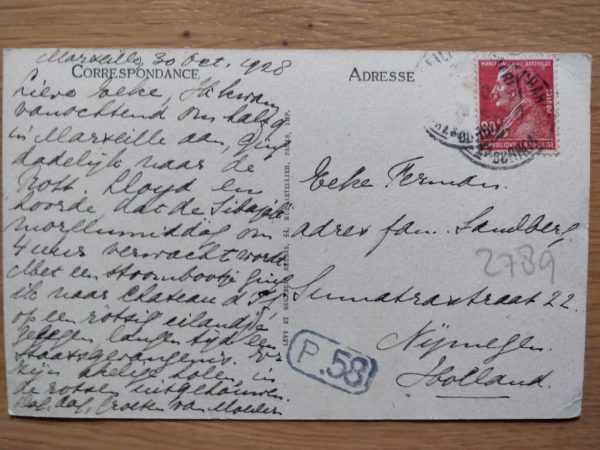 Marseille 30 Oct. 1928
CORRESPONDANCE
Lieve Eeke, Ik kwam
vanochtend om half 9
in Marseille aan, ging
dadelijk naar de
Rott. Lloyd en
hoorde dat de Sibajak
morgenmiddag om
4 uur verwacht wordt.
Met een stoombootje ging
ik naar Chateau d'If
op een rotsig eilandje
gelegen, langen tijd een
staatsgevangenis. Er
zijn akelige holen in
de rotsen uitgehouwen.
Dag, dag, Groeten van Moeder
LÉVY ET NEURDEIN RÉUNIS, 44, RUE LETELLIER, PARIS, IMP.
ADRESSE
MARCELLIN BERTHELOT
POSTES
90c
RÉPUBLIQUE FRANÇAISE
Eeke Ferman
adres fam. Sandberg
2789
Sumatrastraat 22.
Nijmegen.
Holland.
P.58